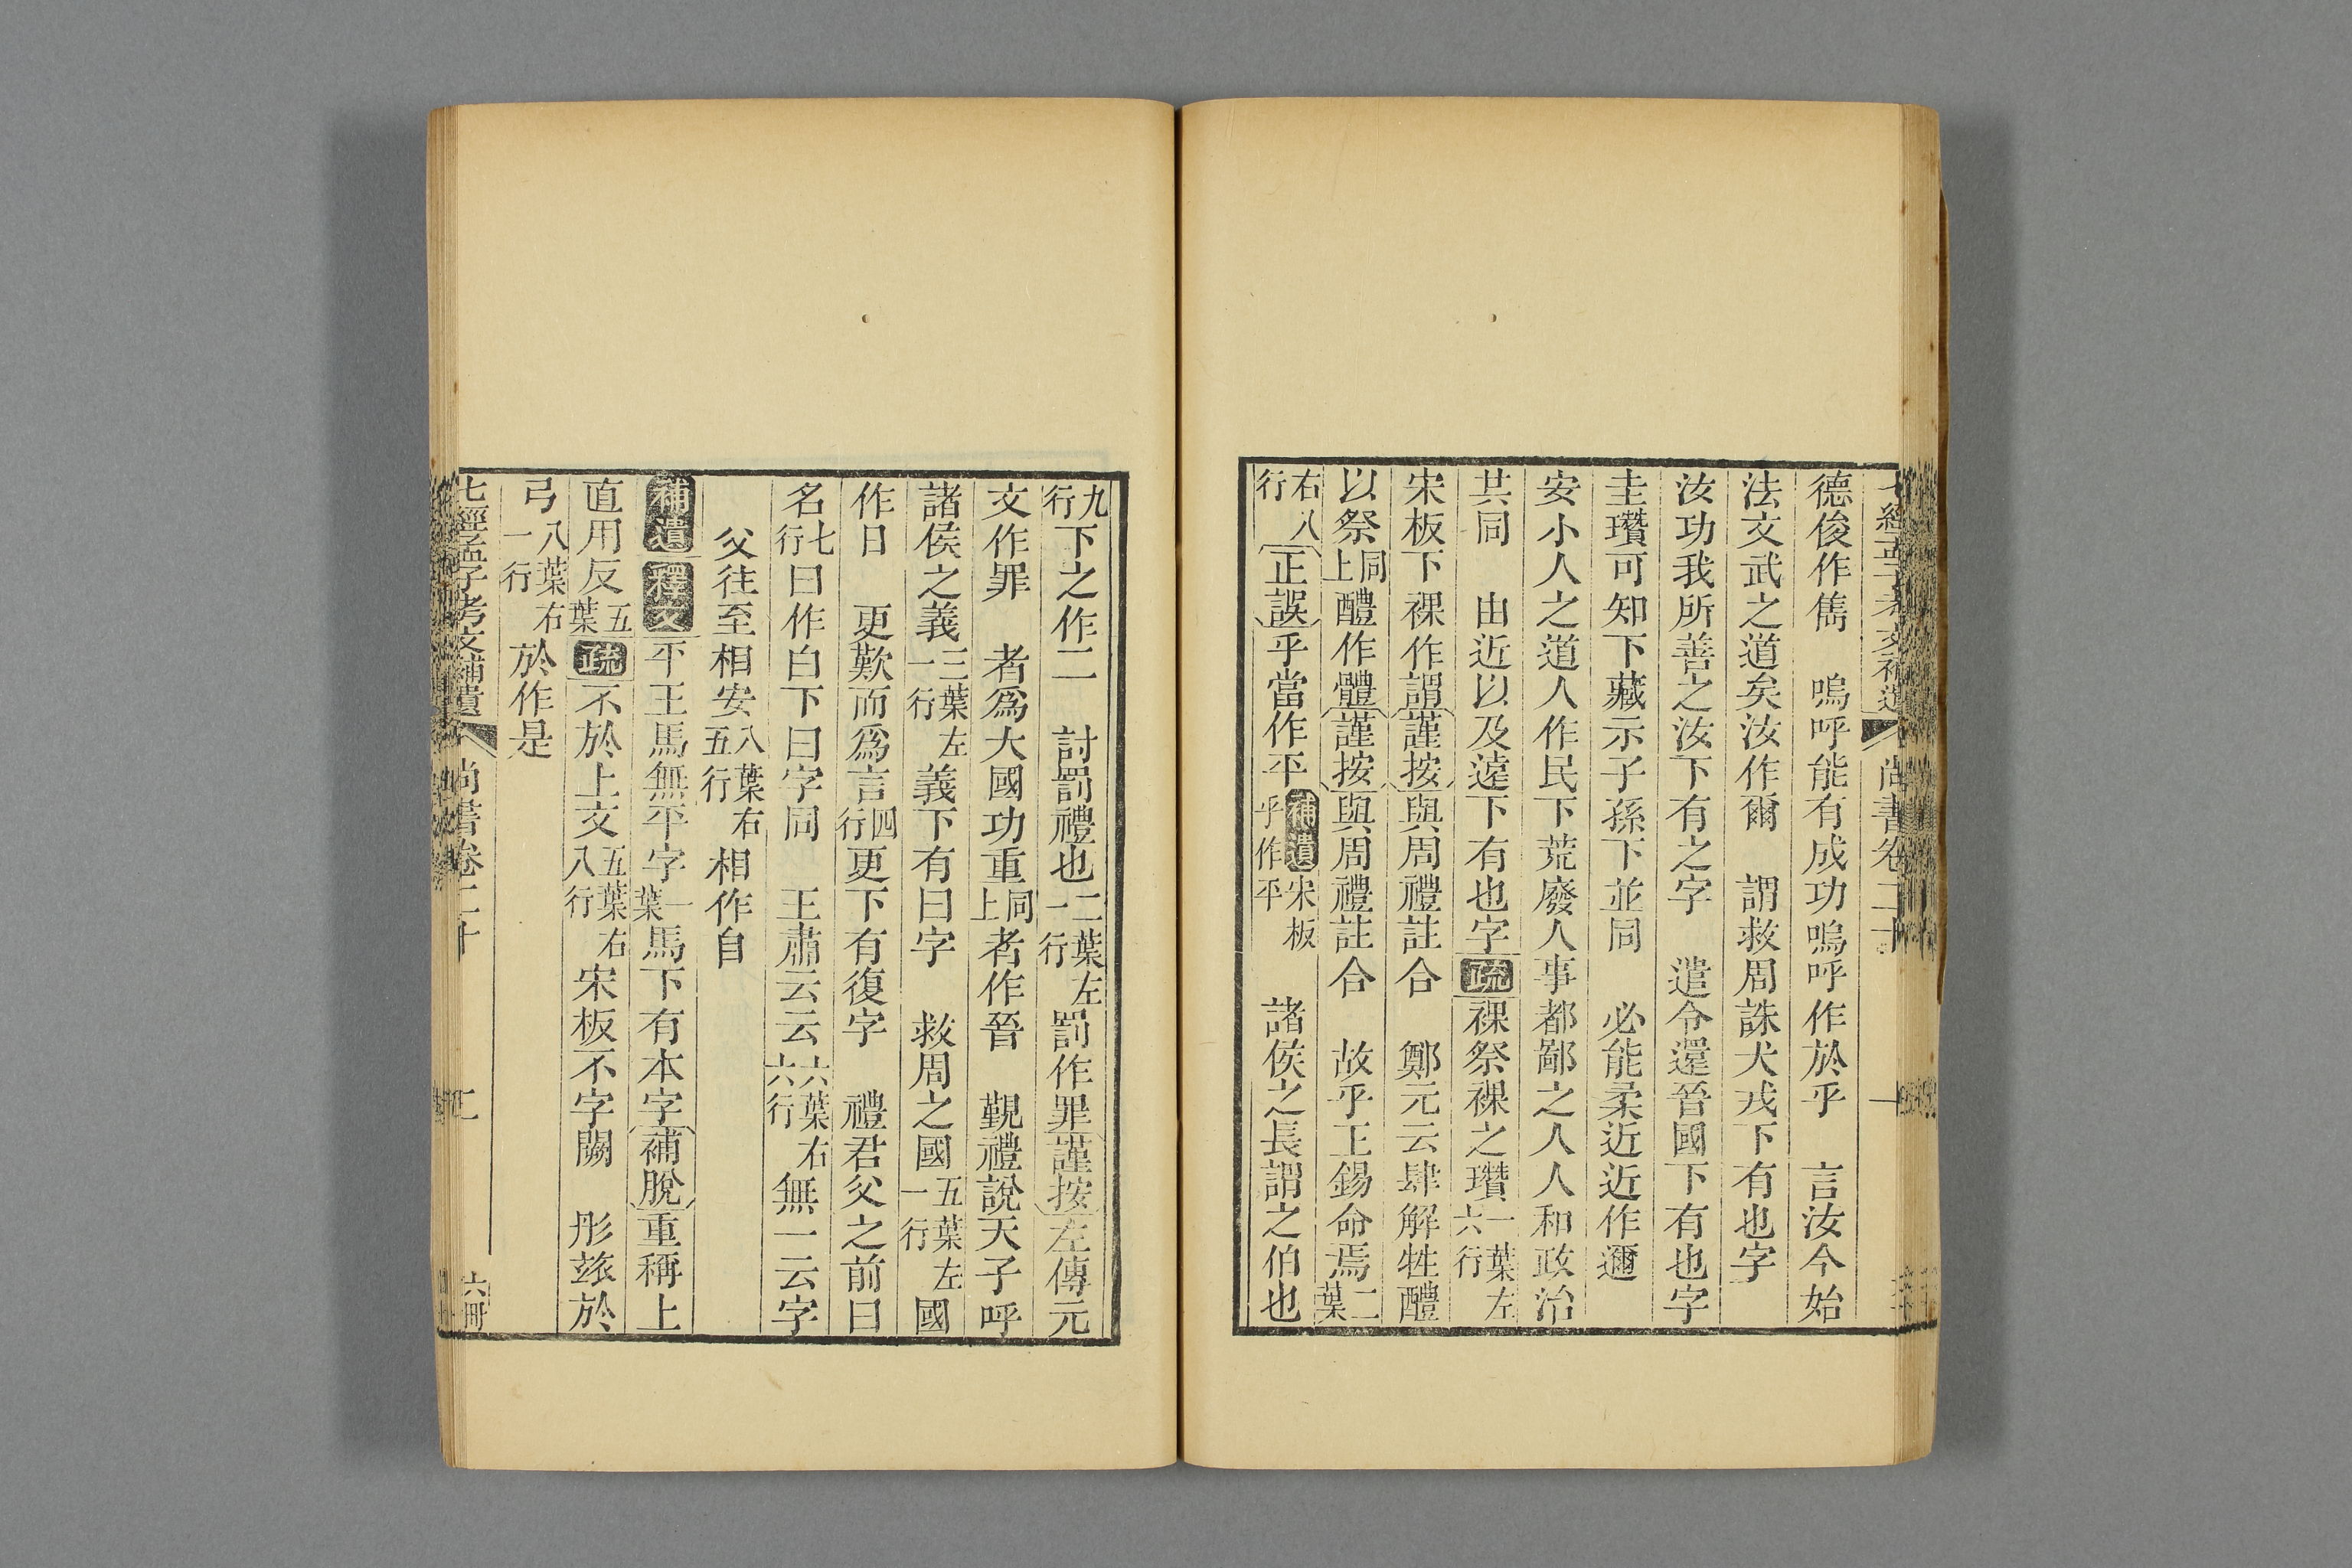 七經孟子考文補遺 尚書卷二十
德俊作儁　嗚呼能有成功嗚呼作於乎　言汝今始
法文武之道矣汝作爾　謂救周誅犬戎下有也字
汝功我所善之汝下有之字　遣令還晉國下有也字
圭瓚可知下藏示子孫下並同　必能柔近近作邇
安小人之道人作民下荒廢人事都鄙之人人和政治
共同　由近以及遠下有也字疏祼祭祼之瓚一葉左六行
宋板下祼作謂謹按與周禮註合　鄭元云肆解牲醴
以祭同上醴作體謹按與周禮註合　故乎王錫命焉二葉
右八行正誤乎當作平補遺宋板乎作平　諸侯之長謂之伯也
九行下之作二　討罰禮也二葉左一行罰作罪謹按左傳元
文作罪　者爲大國功重同上者作晉　覲禮說天子呼
諸侯之義三葉左一行義下有曰字　救周之國五葉左一行國
作日　更歎而爲言四行更下有復字　禮君父之前曰
名七行曰作白下曰字同　王肅云云六葉右六行無一云字
父往至相安八葉右五行相作自
補遺釋文平王馬無平字一葉馬下有本字補脫重稱上
直用反五葉疏不於上文五葉右八行宋板不字闕　彤玈於
弓八葉右一行於作是
七經孟子考文補遺 尚書卷二十 六冊